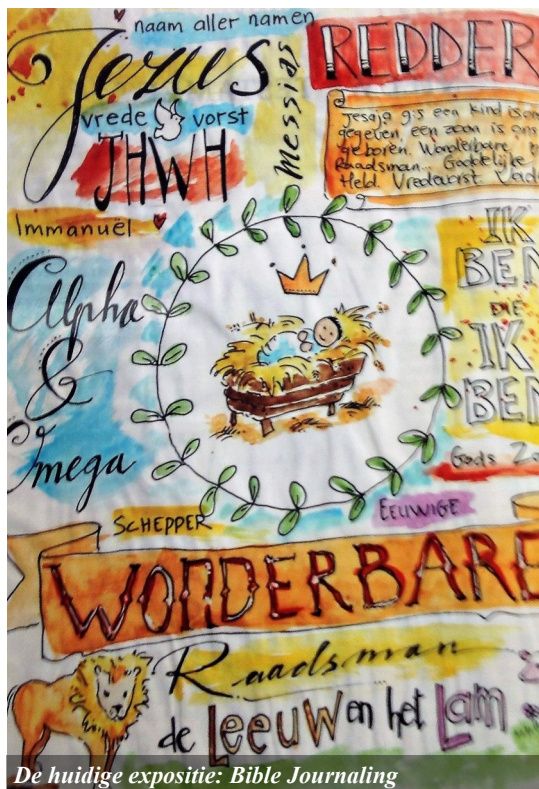 naam aller namen
Jezus
Messias
REDDER
vrede vorst
JHWH
Jesaja 9:5 een kind is on
gegeven, een zoon is ons
geboren. Wonderbare,
Raadsman. Goddelijke
Held. Vredevorst. Vad
Immanuël
Alpha
&
Omega
IK
BEN
DIE
IK
BEN
Gods Zo
SCHEPPER
EEUWIGE
WONDERBARE
Raadsman
de Leeuw en het Lam
De huidige expositie: Bible Journaling